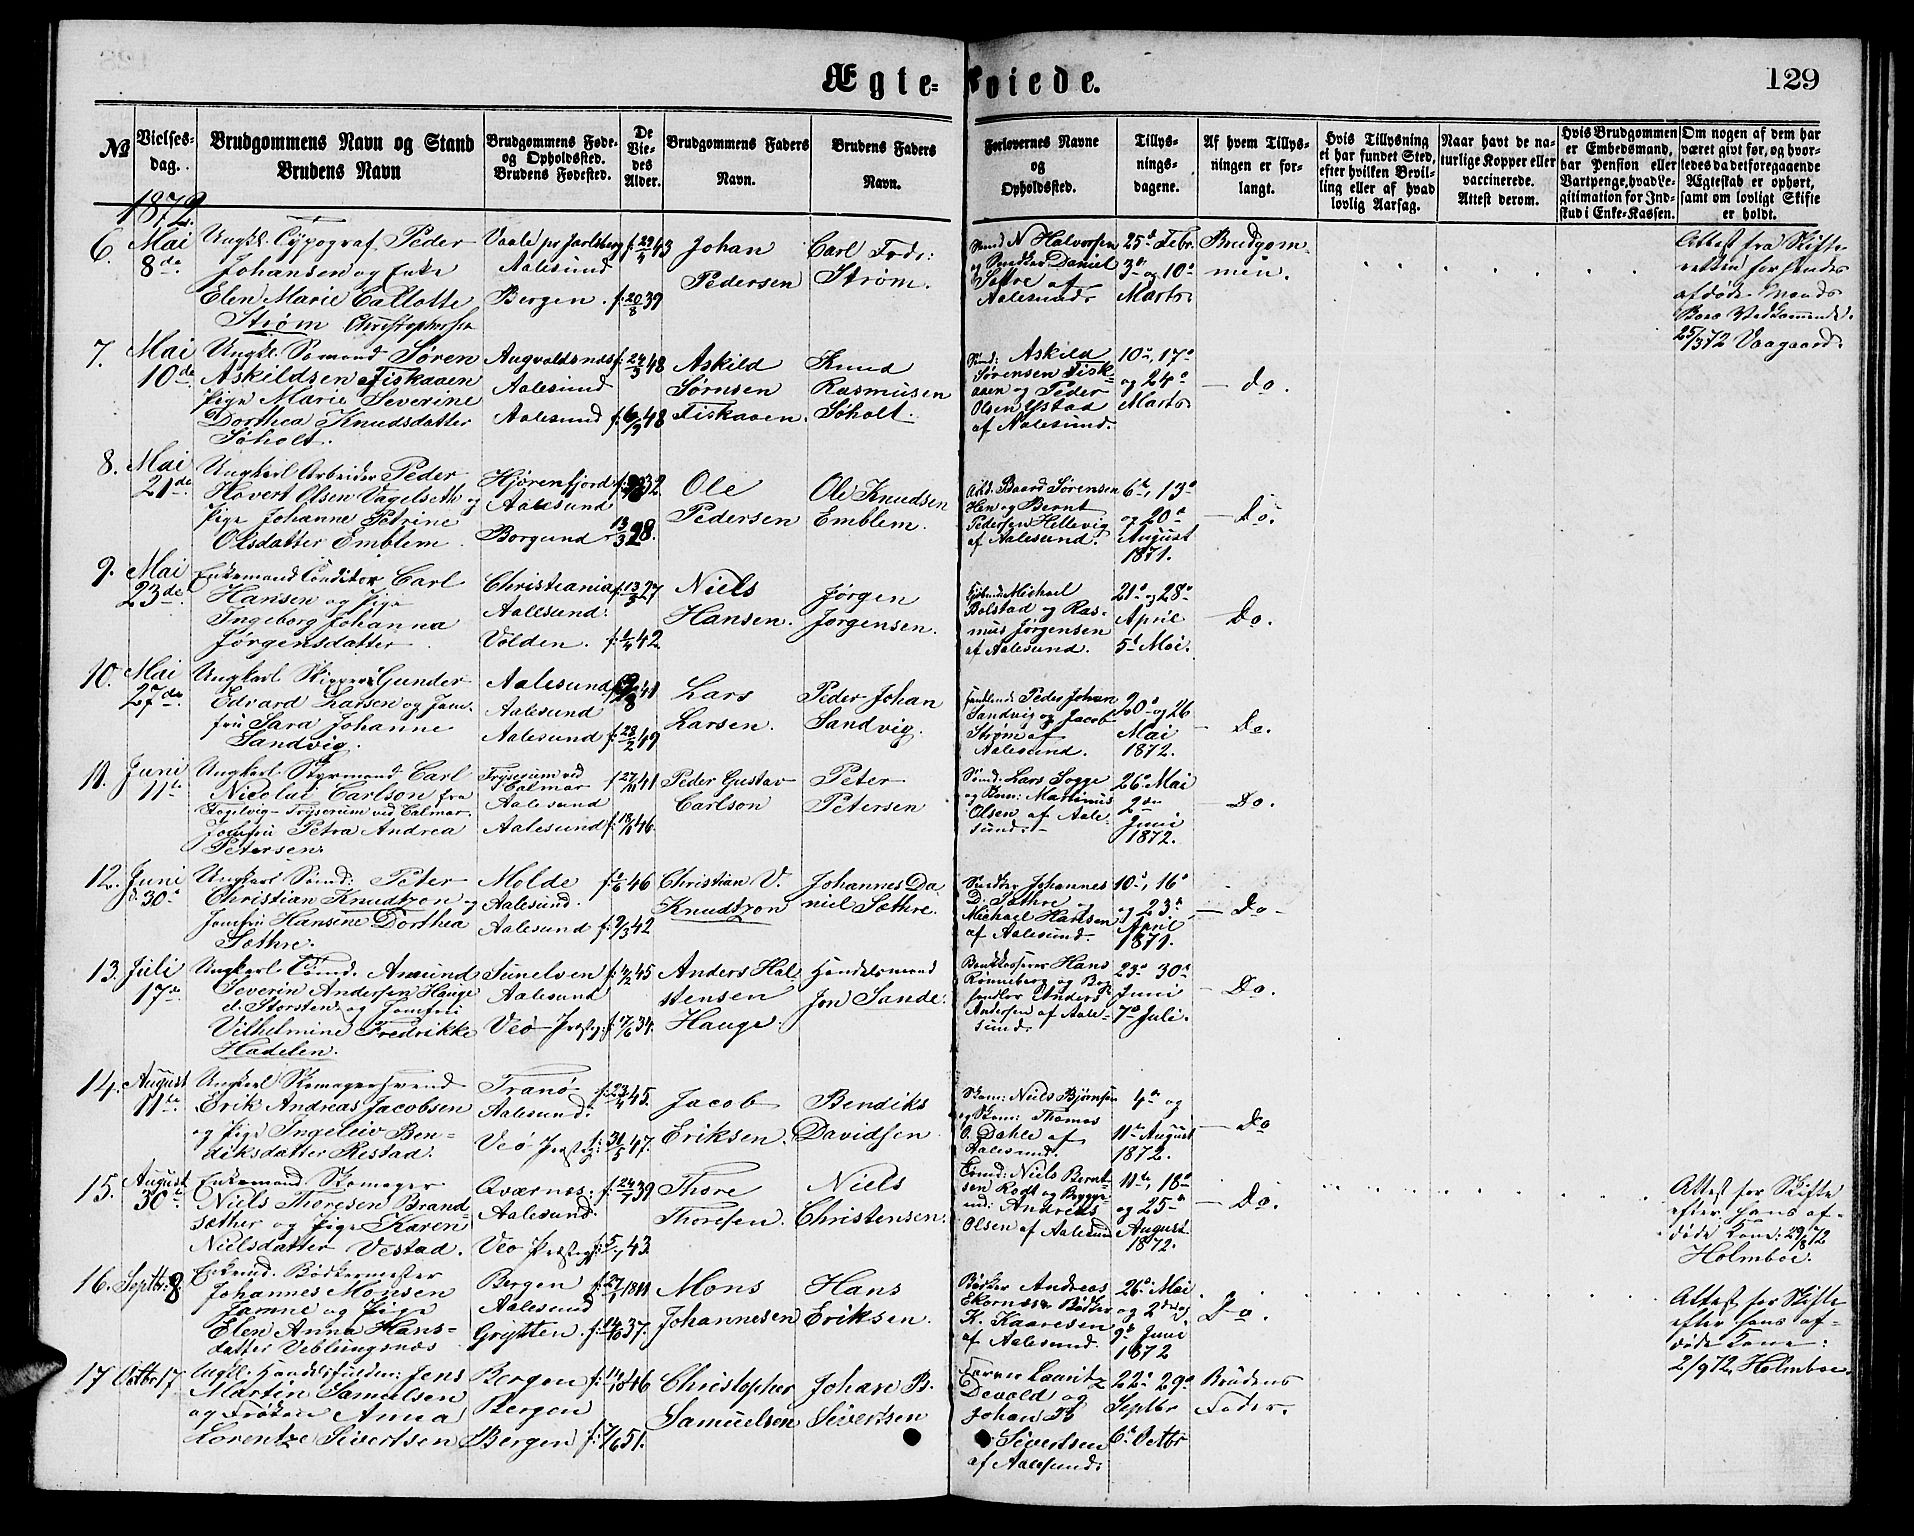 Ægte-viede.
129
No
Vielses-
dag.
Brudgommens Navn og Stand
Brudens Navn
Brudgommens Føde-
og Opholdssted.
Brudens Fødested.
De
Vie-
des
Alder.
Brudgommens Faders
Navn.
Brudens Faders
Navn.
Forlovernes Navne
og
Opholdssted.
Tillys-
nings-
dagene.
Af hvem Tillys-
ningen er for-
langt.
Hvis Tillysning
ei har fundet Sted,
efter hvilken Bevil-
ling eller af hvad
lovlig Aarsag.
Naar havt de na-
turlige Kopper eller
vaccinerede.
Attest derom.
Hvis Brudgommen
er Embedsmand,
har Pension eller
Vartpenge, hvad Le-
gitimation for Ind-
skud i Enke-Kassen.
Om nogen af dem har
været givt før, og hvor-
ledes da det foregaaende
Ægteskab er ophørt,
samt om lovligt Skifte
er holdt.
1872
6.
Mai
8de
Ungkl. Typograf. Peder
Johansen og Enke
Elen Marie Callotte
Strøm Christophersen
Vaale pr Jarlsberg
Aalesund
Bergen.
f. 29/4 43
f. 20/8 39
Johan
Pedersen
Carl Fr
Strøm.
N Halvorsen
og Snedker Daniel
Sætre af
Aalesund
25de Febr.
3de og 10de
Marts
Brudgom-
men.
Attest fra Skifte
retten for hendes
afdøde Mands
Bos Vedkommende.
25/3 72 Vaagaard.
7.
Mai
10de
Ungkl. Sømand Søren
Askildsen Fiskaaen
Pige Marie Severine
Dorthea Knudsdatter
Søholt.
Augvaldsnæs
Aalesund
Aalesund
f. 24/3 48
f. 6/9 48
Askild
Sørnsen
Fiskaaen.
Knud
Rasmusen
Søholt.
Askild
Sørensen Fisk-
aaen og Peder
Olsen Ystad
af Aalesund.
10de, 17de
og 24de
Marts
— do.
8.
Mai
21de
Ungkarl Arbeider Peder
Hovert Olsen Vagelseth og
Pige Johanne Petrine
Olsdatter Emblem
Hjørenfjord
Aalesund
Borgund
32
13/3 28.
Ole
Pedersen
Ole Knudsen
Emblem.
Arbd. Baard Sørensen
Hen og Bernt
Pedersen Hellevig
af Aalesund.
6te, 13de
og 20de
August
1871.
— Do.
9.
Mai
23de
Enkemand Conditor Carl
Hansen og Pige
Ingeborg Johanna
Jørgensdatter
Christiania
Aalesund.
Volden.
f. 13/3 27
f. 1/4 42
Niels
Hansen.
Jørgen
Jørgensen.
Michael
Bolstad og Ras-
mus Jørgensen
af Aalesund.
21de og 28de
April
5te Mai.
— Do.
10.
Mai
27de
Ungkarl Skipper Gunder
Edvard Larsen og Jom-
fru Sara Johanne
Sandvig.
Aalesund
Aalesund
Aalesund
41
f. 28/2 49
Lars
Larsen.
Peder Johan
Sandvig.
Peder Johan
Sandvig og Jacob
Strøm af
Aalesund.
20de og 26
Mai
1872.
— Do.
11.
Juni
11te
Ungkarl Styrmand Carl
Nicolai Carlson fra
Fogelvig Tryserum ved Calmar.
Jomfru Petra Andrea
Petersen.
Tryserum ved
Calmar
Aalesund
Aalesund
f. 27/11 41
f. 18/6 46.
Peder Gustav
Carlson
Peter
Petersen
Sømd: Lars Sogge
og Skom: Martinus
Olsen af Aale-
sund.
26de Mai
2den
Juni
1872.
— Do.
12.
Juni
d. 30te
Ungkarl Sømd: Peter
Christian Knudtzon og
Jomfru Hansine Dorthea
Sæthre.
Molde
Aalesund.
Aalesund
46
f. 9/3 42
Christian V.
Knudtzon
Johannes Da
niel Sæthre.
Snedker Johannes
D. Sæthre og
Michael Hansen
af Aalesund.
10de, 16de
og 23de
April
1871.
— Do —
13.
Juli
17de
Ungkarl Amund
Severin Andersen Hauge
d: Storsten og Jomfru
Vilhelmine Fredrikke
Hadelen.
Sunelven
Aalesund
Veø Præstg:
45
f. 17/6 34.
Anders Hal-
stensen
Hauge.
Handelsmand
Jon Sande.
Bankkasserer Hans
Rønneberg og Bog
handler Anders
Andersen af Aale-
sund.
23de 30de
Juni
7de Juli.
— Do.
14.
August
11te
Ungkarl Skomagersvend
Erik Andreas Jacobsen
og Pige Ingeleiv Ben-
diksdatter Restad.
Tranø
Aalesund.
Veø Præstg
f. 23/4 45.
f. 31/5 47.
Jacob
Eriksen.
Bendiks
Davidsen
Skom: Niels Bjønsen
og Skom: Thomas
O. Dahle af
Aalesund.
4de og
11te August
1872.
— Do
15.
August
30te
Enkemand Skomager
Niels Thoresen Brand-
sæther og Pige Karen
Nielsdatter Vestad.
Qværnes
Aalesund.
Veø Præstegj:
f. 24/7 39
f. 5/7 43.
Thore
Thoresen.
Niels
Christensen.
Niels Bernt-
sen Rodt og Bygge-
md: Andreas
Olsen af Aalesund
11te, 18de
og 25de
August
1872.
— Do.
Attest for Skifte
efter hans af-
døde Kone: 29/8 72
Holmboe.
16.
Septbr: 8
Enkemd. Bødkermester
Johannes Monsen
Janne og Pige
Elen Anna Hans-
datter Veblungsnæs
Bergen
Aalesund
Grytten.
f. 27/1 1811
f. 14/10 37.
Mons
Johannesen
Hans
Eriksen.
Bødker Andreas
Ekornæs og Bødker
K. Kaaresen
af Aalesund.
26de Mai
og 2den og
9de Juni
1872
Do.
Attest for Skifte
efter hans af-
døde Kone:
2/9 72 Holmboe.
17
Octbr 17
Ungkl: Handelsfuldm: Jens
Martin Samuelsen
og Frøken Anna
Lorentze Sivertsen
Bergen
Bergen
Bergen
f. 14/10 46
f. 7/6 51.
Christopher
Samuelsen
Johan B.
Sivertsen
Farver Lauritz
Devold og
Johan B
Sivertsen
af Aalesund.
22de 29de
Septbr
6te Octbr
Brudens
Fader.